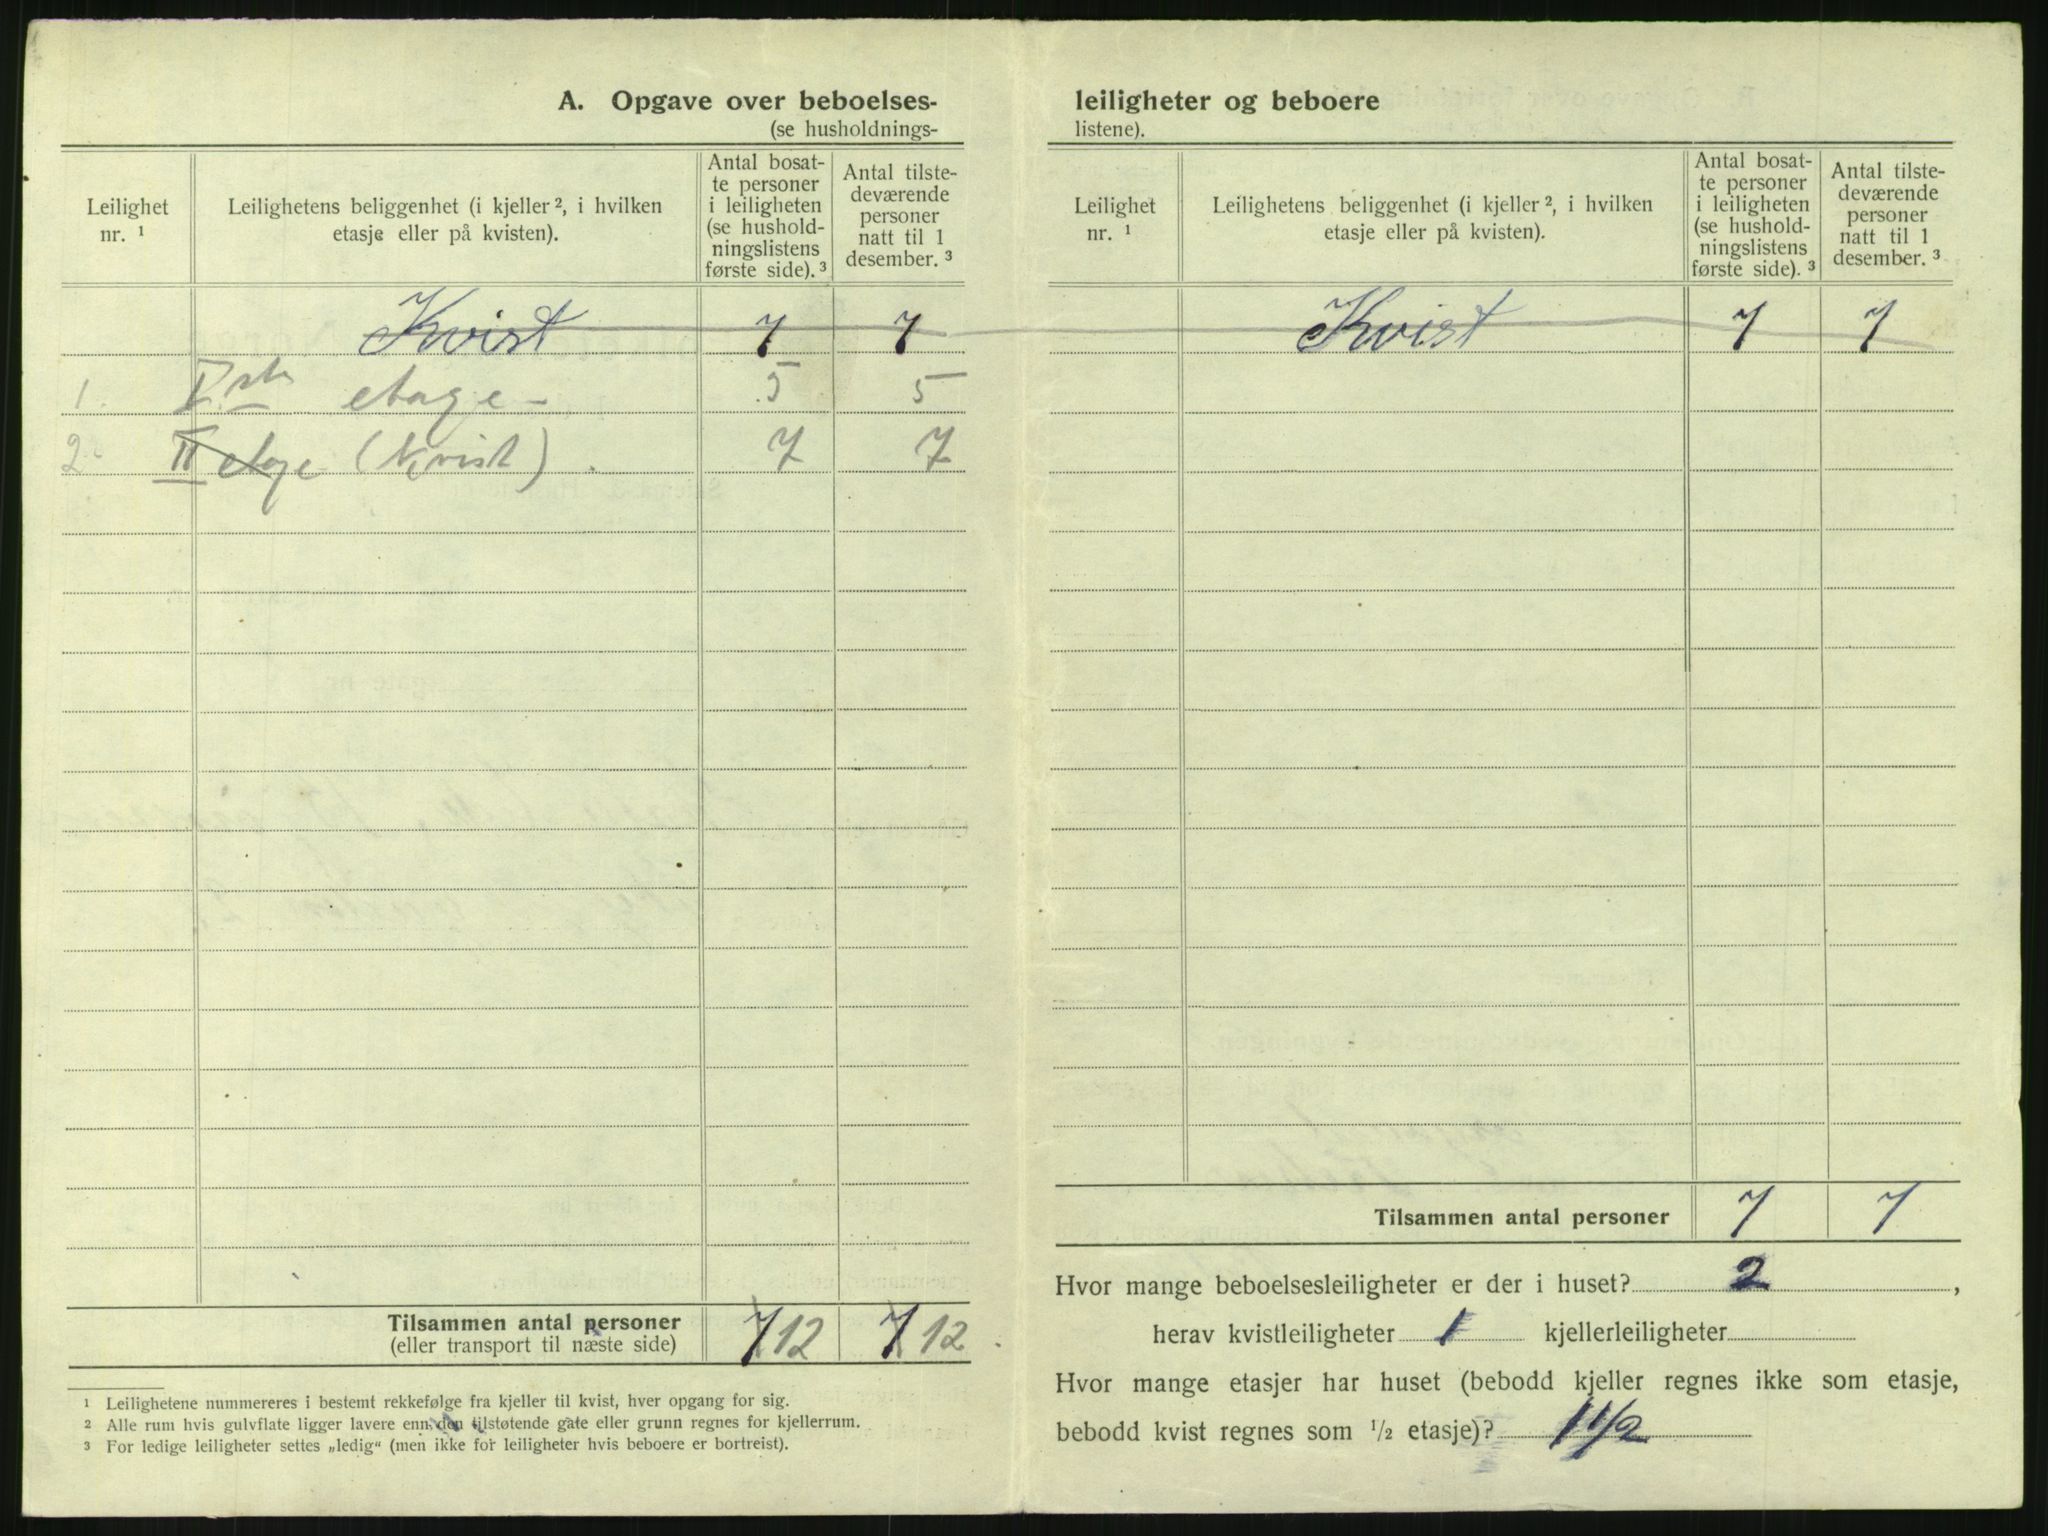 A. Opgave over beboelses-
(se husholdnings-
Leilighet nr. ¹
Leilighetens beliggenhet (i kjeller ², i hvilken
etasje eller på kvisten).
Antal bosat-
te personer
i leiligheten
(se hushold-
ningslistens
første side). ³
Antal tilste-
deværende
personer
natt til 1
desember. ³
Kvist 7 7
1. Iste etage 5 5
2. II etage (Kvist). 7 7
Tilsammen antal personer 7 12 7 12
(eller transport til næste side)
¹ Leilighetene nummereres i bestemt rekkefølge fra kjeller til kvist, hver opgang for sig.
² Alle rum hvis gulvflate ligger lavere enn den tilstøtende gate eller grunn regnes for kjellerrum.
³ For ledige leiligheter settes „ledig“ (men ikke for leiligheter hvis beboere er bortreist).
leiligheter og beboere
listene).
Leilighet nr. ¹
Leilighetens beliggenhet (i kjeller ², i hvilken
etasje eller på kvisten).
Antal bosat-
te personer
i leiligheten
(se hushold-
ningslistens
første side). ³
Antal tilste-
deværende
personer
natt til 1
desember. ³
Kvist 7 7
Tilsammen antal personer 7 7
Hvor mange beboelsesleiligheter er der i huset? 2,
herav kvistleiligheter 1 kjellerleiligheter
Hvor mange etasjer har huset (bebodd kjeller regnes ikke som etasje,
bebodd kvist regnes som ½ etasje)? 1 1/2